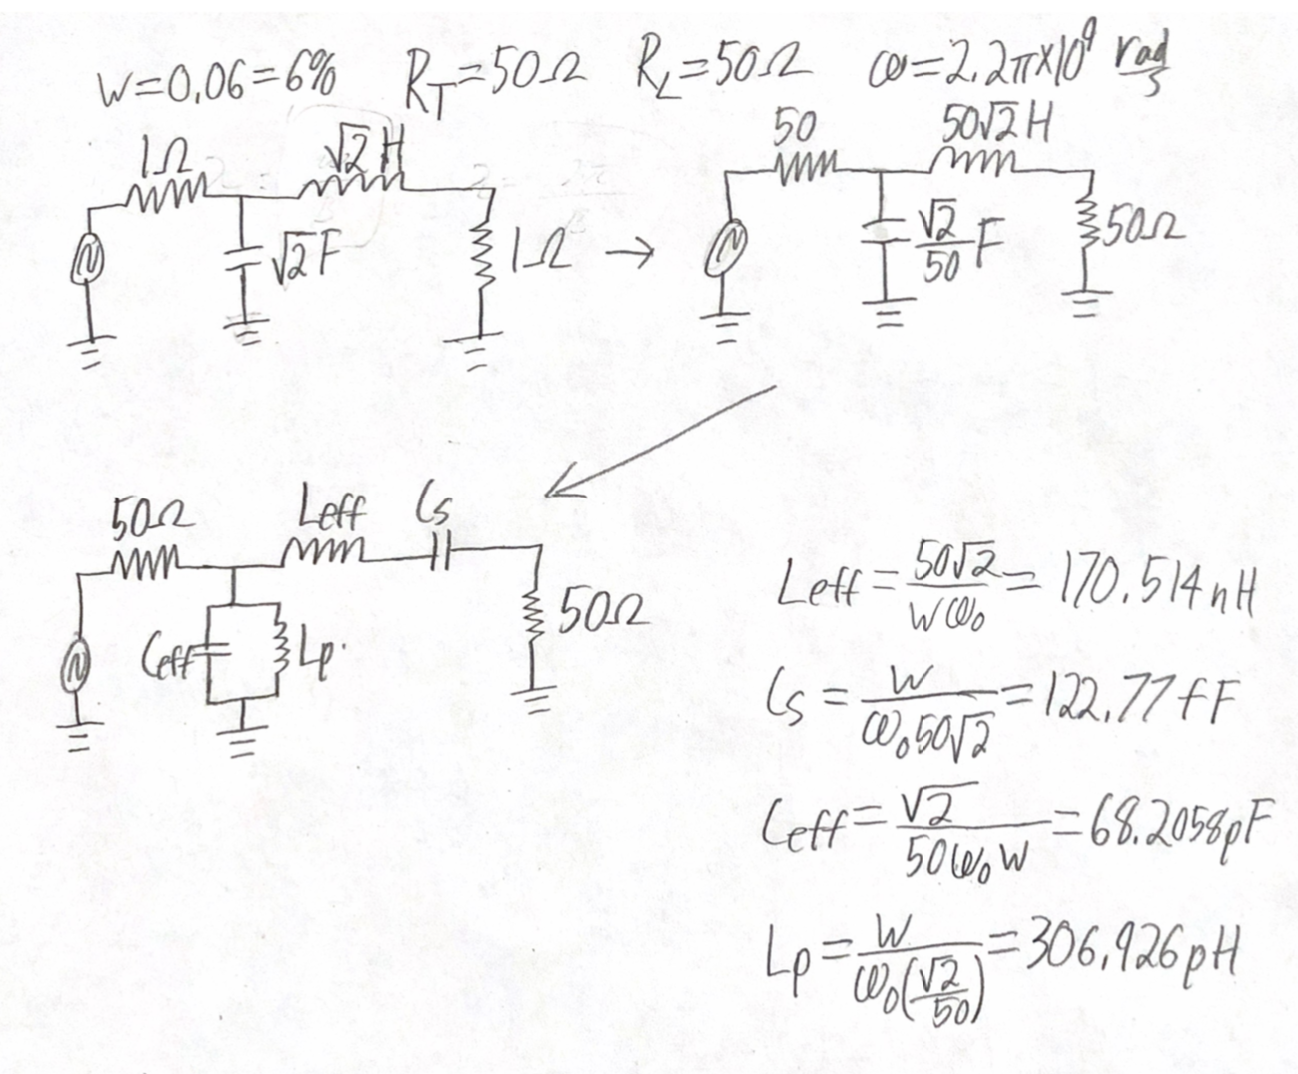 W=0.06=6% R_T=50Ω R_L=50Ω ω=2.2π×10⁹ rad/s
1Ω √2H 50 50√2H
√2F 1Ω → √2/50 F 50Ω
50Ω Leff Cs
Ceff Lp 50Ω
Leff = 50√2/(Wω₀) = 170.514nH
Cs = W/(ω₀50√2) = 122.77fF
Ceff = √2/(50ω₀W) = 68.2058pF
Lp = W/(ω₀(√2/50)) = 306.926pH